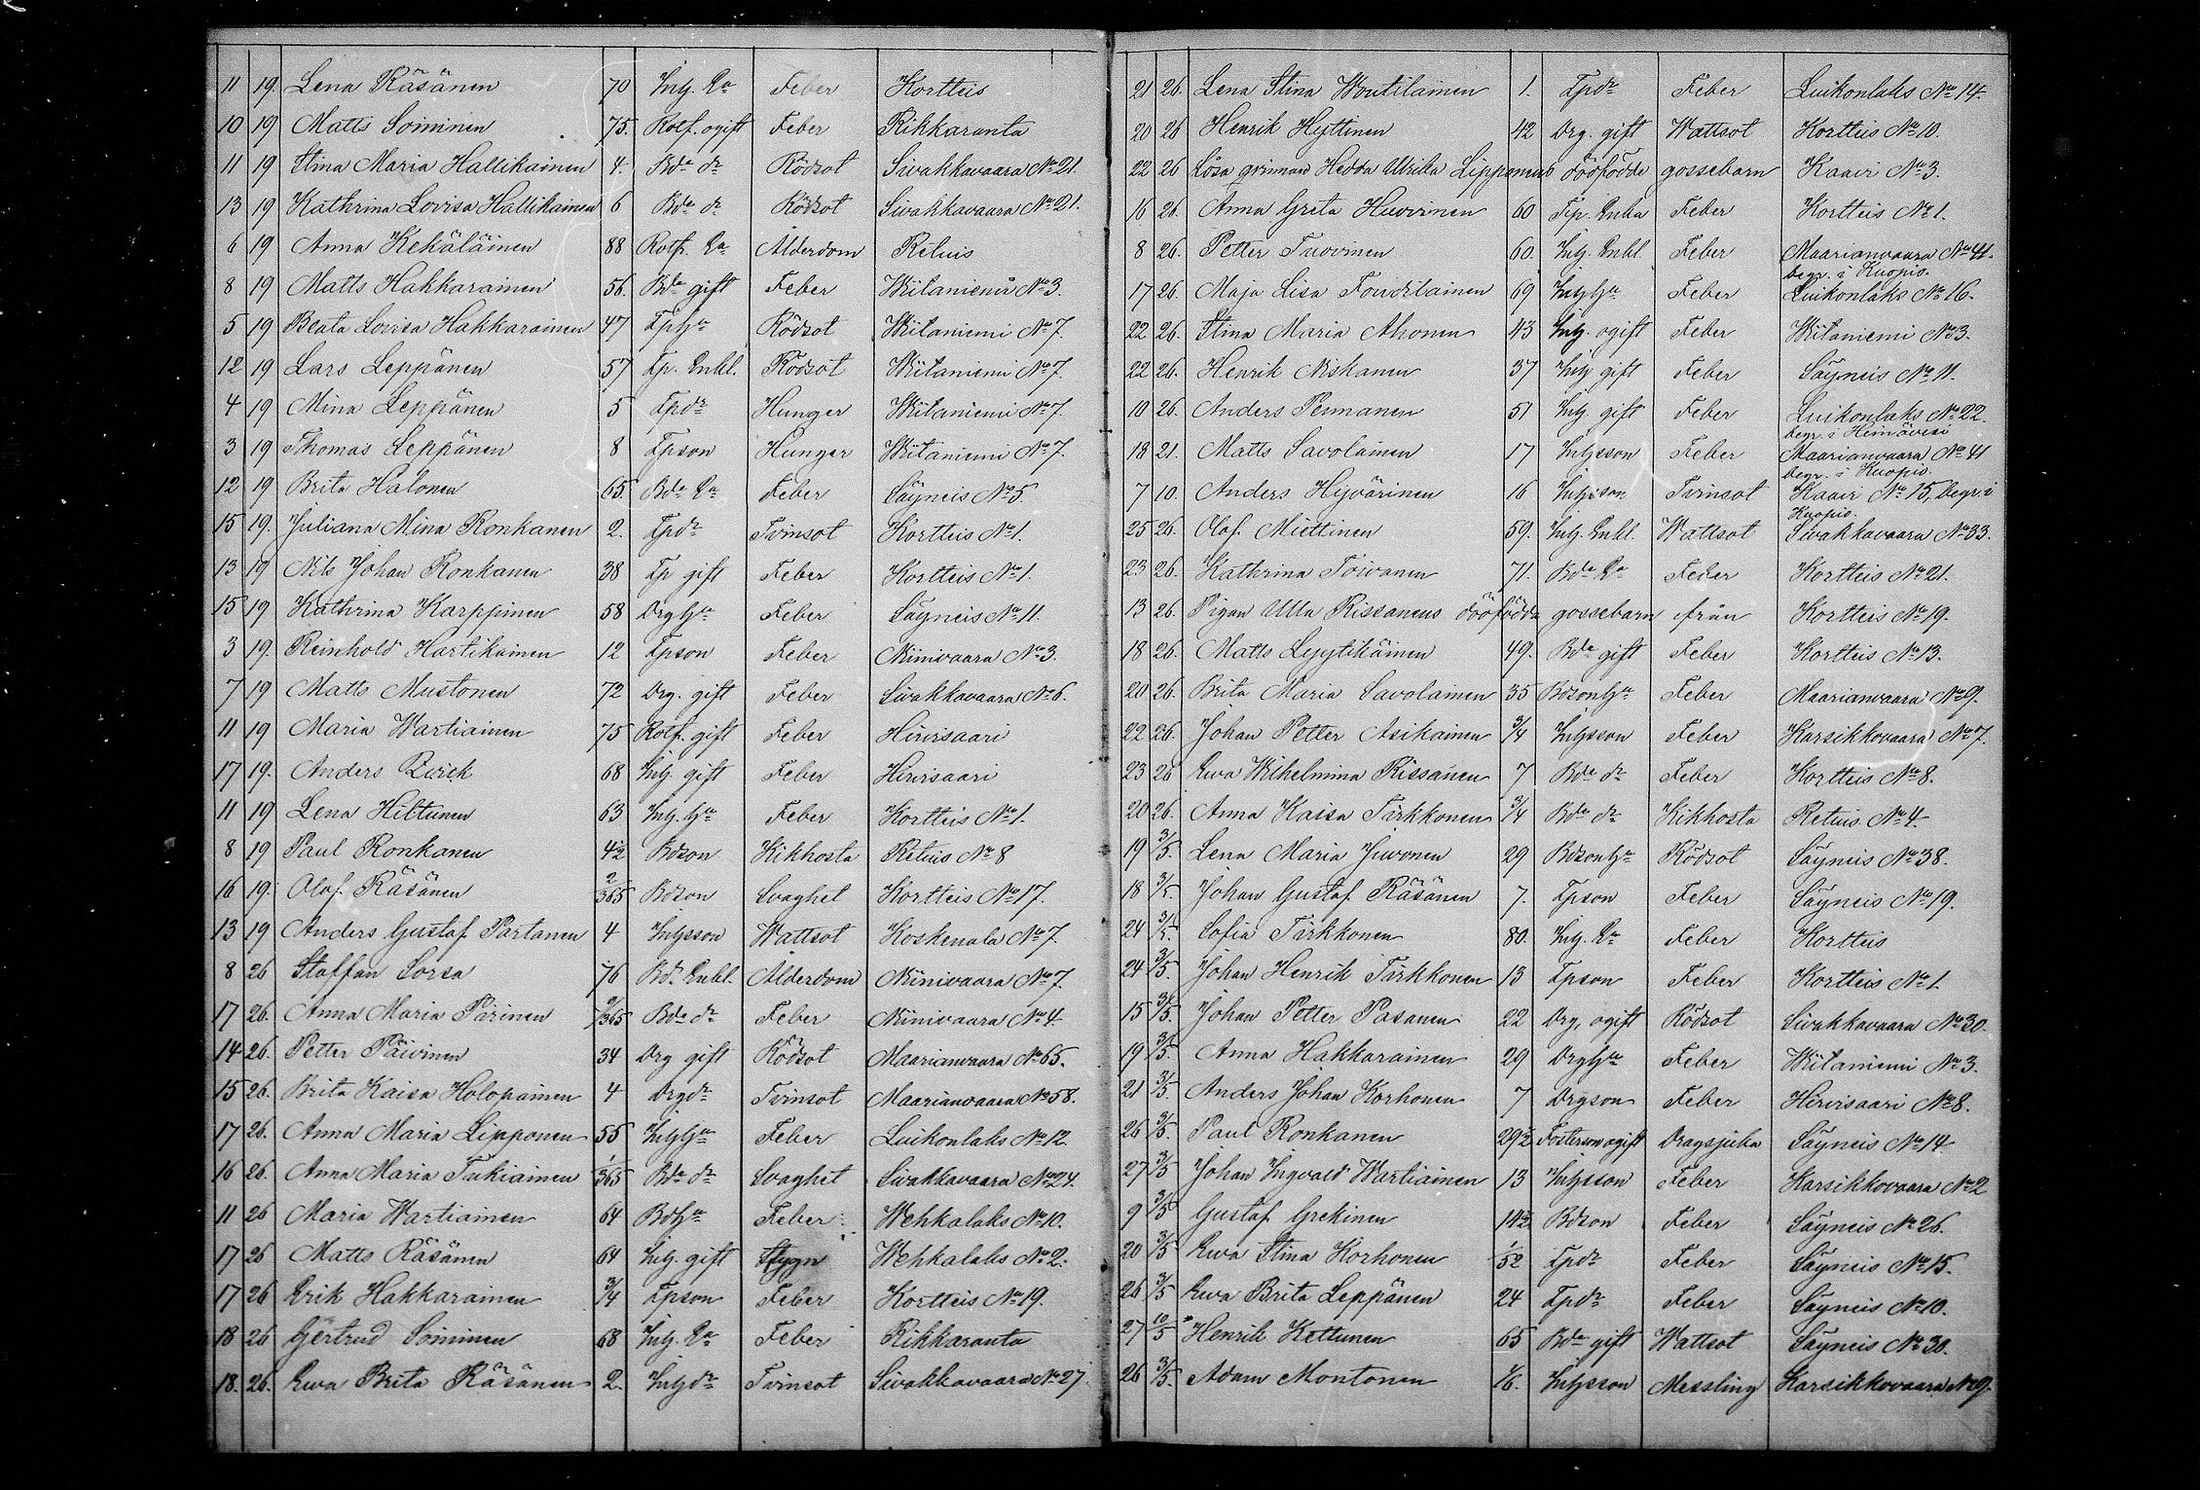 11 19. Lena Räsänen 70 Inh. Ea Feber Kortteis
10 19 Matts Soininen 75. Rotf. ogift Feber Rikkaranta
11 19 Stina Maria Hallikainen 4. Bde dr Rödsot Sivakkavaara No 21.
13 19 Kathrina Lovisa Hallikainen 6 Bde dr Rödsot Sivakkavaara No 21.
6 19 Anna Kekäläinen 88 Rotf. Ea Ålderdom Retuis
8 19 Matts Hakkarainen 56. Bde gift Feber Wiitaniemi No 3.
5 19 Beata Lovisa Hakkarainen 47 Tphu Rödsot Wiitaniemi No 7.
12 19 Lars Leppänen 57 Tp. Enkl. Rödsot Wiitaniemi No 7.
4 19 Mina Leppänen 5 Tpdr Hunger Wiitaniemi No 7.
3 19 Thomas Leppänen 8 Tpson Hunger Wiitaniemi No 7.
12 19 Brita Halonen 65. Bde Ea Feber Säyneis No 5
15 19. Juliana Mina Ronkanen 2. Tpdr Tvinsot Kortteis No 1.
13 19 Nils Johan Ronkanen 38 Tp gift Feber Kortteis No 1.
15 19 Kathrina Karppinen 58 Drghu Feber Säyneis No 11.
3 19. Reinhold Hartikainen 12 Tpson Feber Niinivaara No 3.
7 19 Matts Mustonen 72 Drg. gift Feber Sivakkavaara No 6.
11 19 Maria Wartiainen 75 Rotf. gift Feber Hirvisaari
17 19. Anders 68 Inh. gift Feber Hirvisaari
11 19 Lena Hiltunen 63 Inh. hu Feber Kortteis No 1.
8 19 Paul Ronkanen 4 1/2 Bdson Kikhosta Retuis No 8
16 19. Olof Räsänen 2/365 Bdson Svaghet Kortteis No 17.
13 19 Anders Gustaf Partanen 4 Inhsson Wattsot Koskenala No 7.
8 26 Staffan Sorsa 76 Bde Enkl. Ålderdom Niinivaara No 7.
17 26. Anna Maria Pärinen 9/365 Bde dr Feber Niinivaara No 4.
14 26. Petter Päivinen 34 Drg gift Rödsot Maarianvaara No 65.
15 26. Brita Kaisa Holopainen 4 Drgdr Tvinsot Maarianvaara No 58.
17 26. Anna Maria Lipponen 55 Inhhu Feber Luikonlaks No 12
16 26. Anna Maria Tukiainen 1/365 Bde dr Svaghet Sivakkavaara No 24.
11 26 Maria Wartiainen 64 Bdhu Feber Wehkalaks No 10.
17 26 Matts Räsänen 64 Inh. gift Stygn Wehkalaks No 2.
17 26 Erik Hakkarainen 3/4 Tpson Feber Kortteis No 19.
18 26 Gertrud Soininen 68 Inh. Ea Feber Rikkaranta
18. 26. Ewa Brita Räsänen 2. Inhdr Tvinsot Sivakkavaara No 27
21 26. Lena Stina Woutilainen 1. Tpdr Feber Luikonlaks No 14.
20 26 Henrik Hyttinen 42 Drg. gift Wattsot Kortteis No 10.
22 26 Lösa qvinnans Hedda Ulrika Lipponens dödfödda gossebarn Kaavi No 3.
16 26. Anna Greta Huovinen 60 Tp. Enka Feber Kortteis No 1.
8 26. Petter Tuovinen 60. Inh. Enkl. Feber Maarianvaara No 41.
begr. i Kuopio.
17 26. Maja Lisa Foudilainen 69 Inhhu Feber Luikonlaks No 16.
22 26. Stina Maria Ahonen 43 Inh. ogift Feber Wiitaniemi No 3.
22 26. Henrik Niskanen 37 Inh gift Feber Säyneis No 11.
10 26. Anders Penmanen 51 Inh. gift Feber Luikonlaks No 22.
begr. i Heinävesi
18 21. Matts Savolainen 17 Inhsson Feber Maarianvaara No 41
begr. i Kuopio.
7 10. Anders Hyvärinen 16 Inhsson Tvinsot Kaavi No 15, begr. i
Kuopio.
25 26. Olof Miettinen 59. Inh. Enkl. Wattsot Sivakkavaara No 33.
23 26. Kathrina Toivanen 71. Bde Ea Feber Kortteis No 21.
13 26. Pigan Ulla Rissanens dödfödda gossebarn från Kortteis No 19.
18 26. Matts Lyytikäinen 49. Bde gift Feber Kortteis No 13.
20 26. Brita Maria Savolainen 35 Bdsonhu Feber Maarianvaara No 9.
22 26. Johan Petter Asikainen 3/4 Inhsson Feber Karsikkovaara No 7.
23 26 Ewa Wilhelmina Rissanen 7 Bde dr Feber Kortteis No 8.
20 26. Anna Kaisa Tirkkonen 3/4 Bde dr Kikhosta Retuis No 4.
19 3/5. Lena Maria Juvonen 29 Bdsonhu Rödsot Säyneis No 38.
18 3/5. Johan Gustaf Räsänen 7. Tpson Feber Säyneis No 19.
24 3/5. Sofia Tirkkonen 80. Inh. Ea Feber Kortteis
24 3/5. Johan Henrik Tirkkonen 13 Tpson Feber Kortteis No 1
15 3/5. Johan Petter Pasanen 22 Drg, ogift Rödsot Sivakkavaara No 30.
19 3/5. Anna Hakkarainen 29 Drghu Feber Wiitaniemi No 3.
21 3/5. Anders Johan Korhonen 7 Drgson Feber Hirvisaari No 8.
26 3/5. Paul Ronkanen 29 1/2 Fosterson ogift Dragsjuka Säyneis No 14
27 3/5 Johan Ingvald Wartiainen 13 Inhsson Feber Karsikkovaara No 2
9 3/5 Gustaf Grekinen 14 1/2 Bdson Feber Säyneis No 26.
20 3/5 Ewa Stina Korhonen 1/52 Tpdr Feber Säyneis No 15.
26 3/5 Ewa Brita Leppänen 24 Tpdr Feber Säyneis No 10.
27 10/5 Henrik Kettunen 65 Bde gift Wattsot Säyneis No 30.
26 3/5. Adam Montonen 1/6. Inhsson Messling Karsikkovaara No 9.